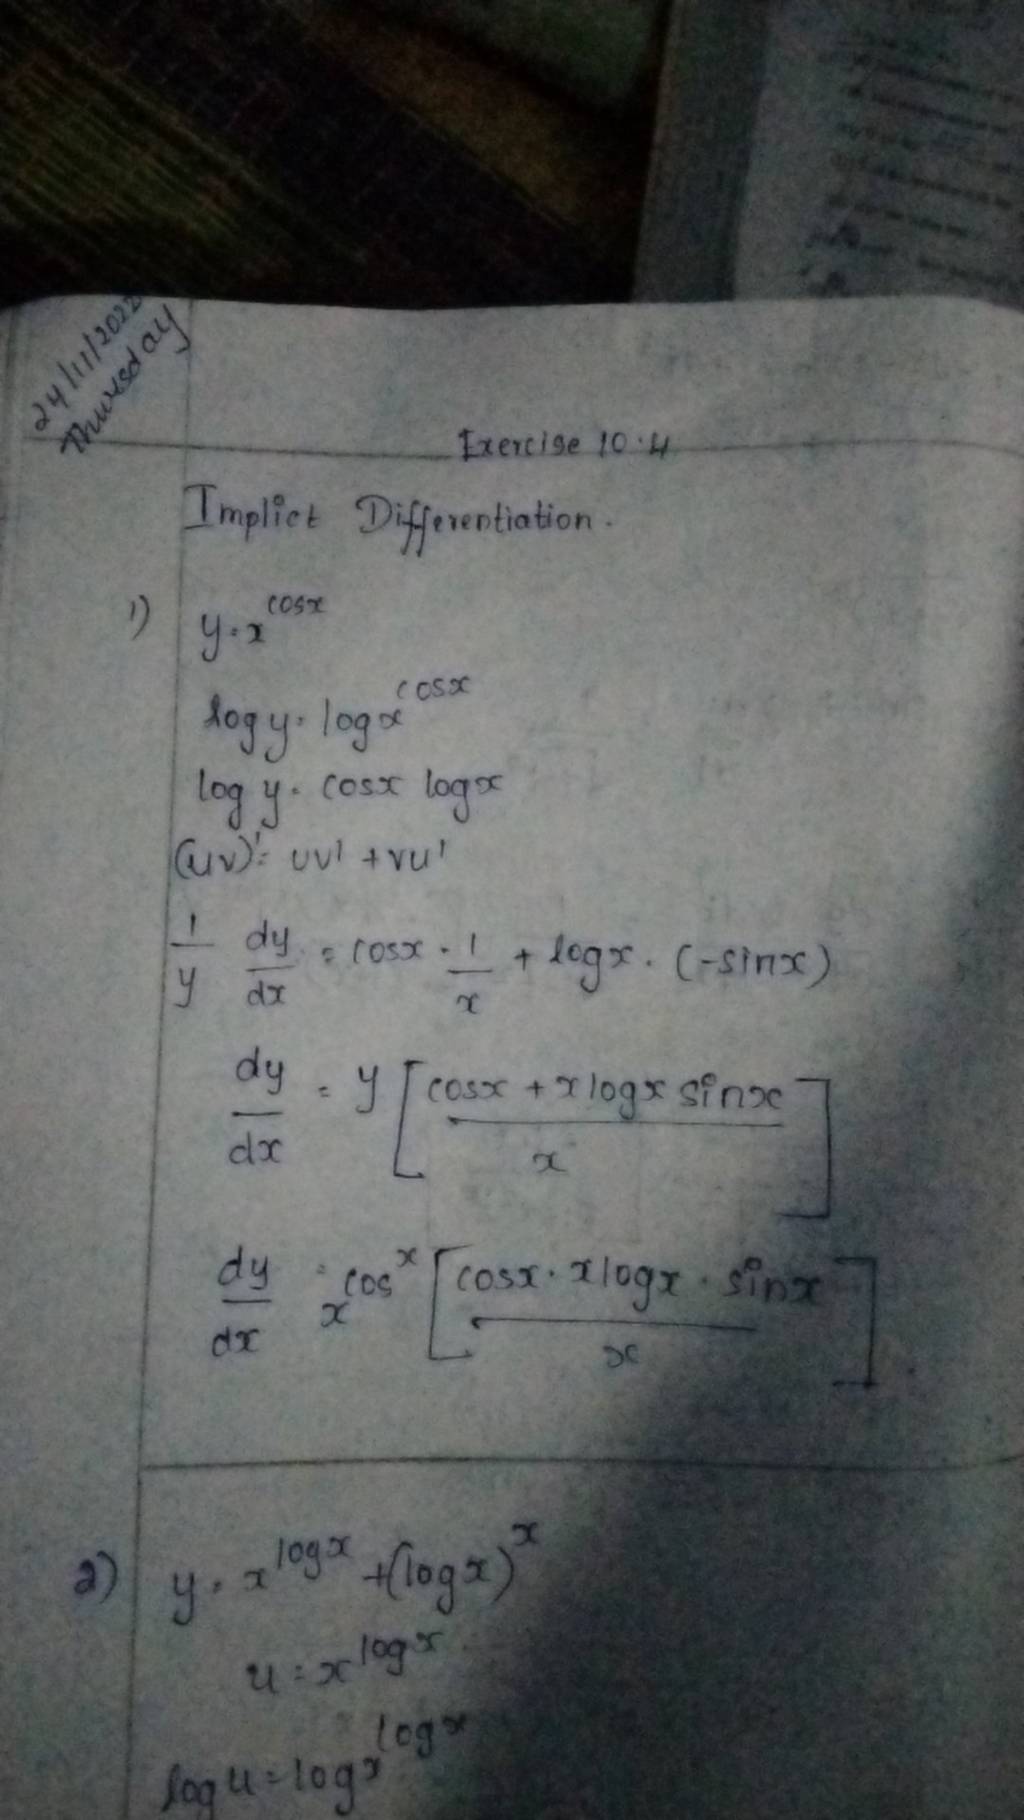 24/11/2022
Thursday
Exercise 10.4
Implict Differentiation.
1) y = x^cosx
log y = log x^cosx
log y = cosx logx
(uv)' = uv' + vu'
1/y dy/dx = cosx . 1/x + logx . (-sinx)
dy/dx = y [cosx + x logx sinx / x]
dy/dx = x^cos^x [cosx . x logx . sinx / x]
2) y = x^logx + (logx)^x
u = x^logx
log u = log x^logx